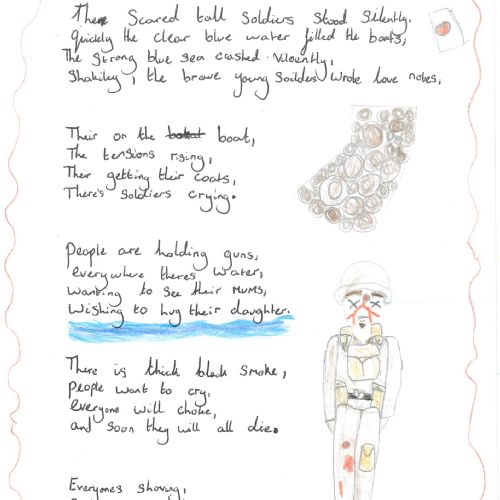 The Scared tall Soldiers Stood Silently.
Quickly the clear blue water filled the boats,
The Strong blue sea crashed Vilountly,
Shakiley, the brave young Soilders wrote love notes,
Their on the boat,
The tensions rising,
Their getting their coats,
There's Soldiers crying.
People are holding guns,
everywhere theres water,
wanting to see their Mums,
Wishing to hug their daughter.
There is thick black smoke,
people want to cry,
everyone will choke,
and soon they will all die.
Everyones shoving,